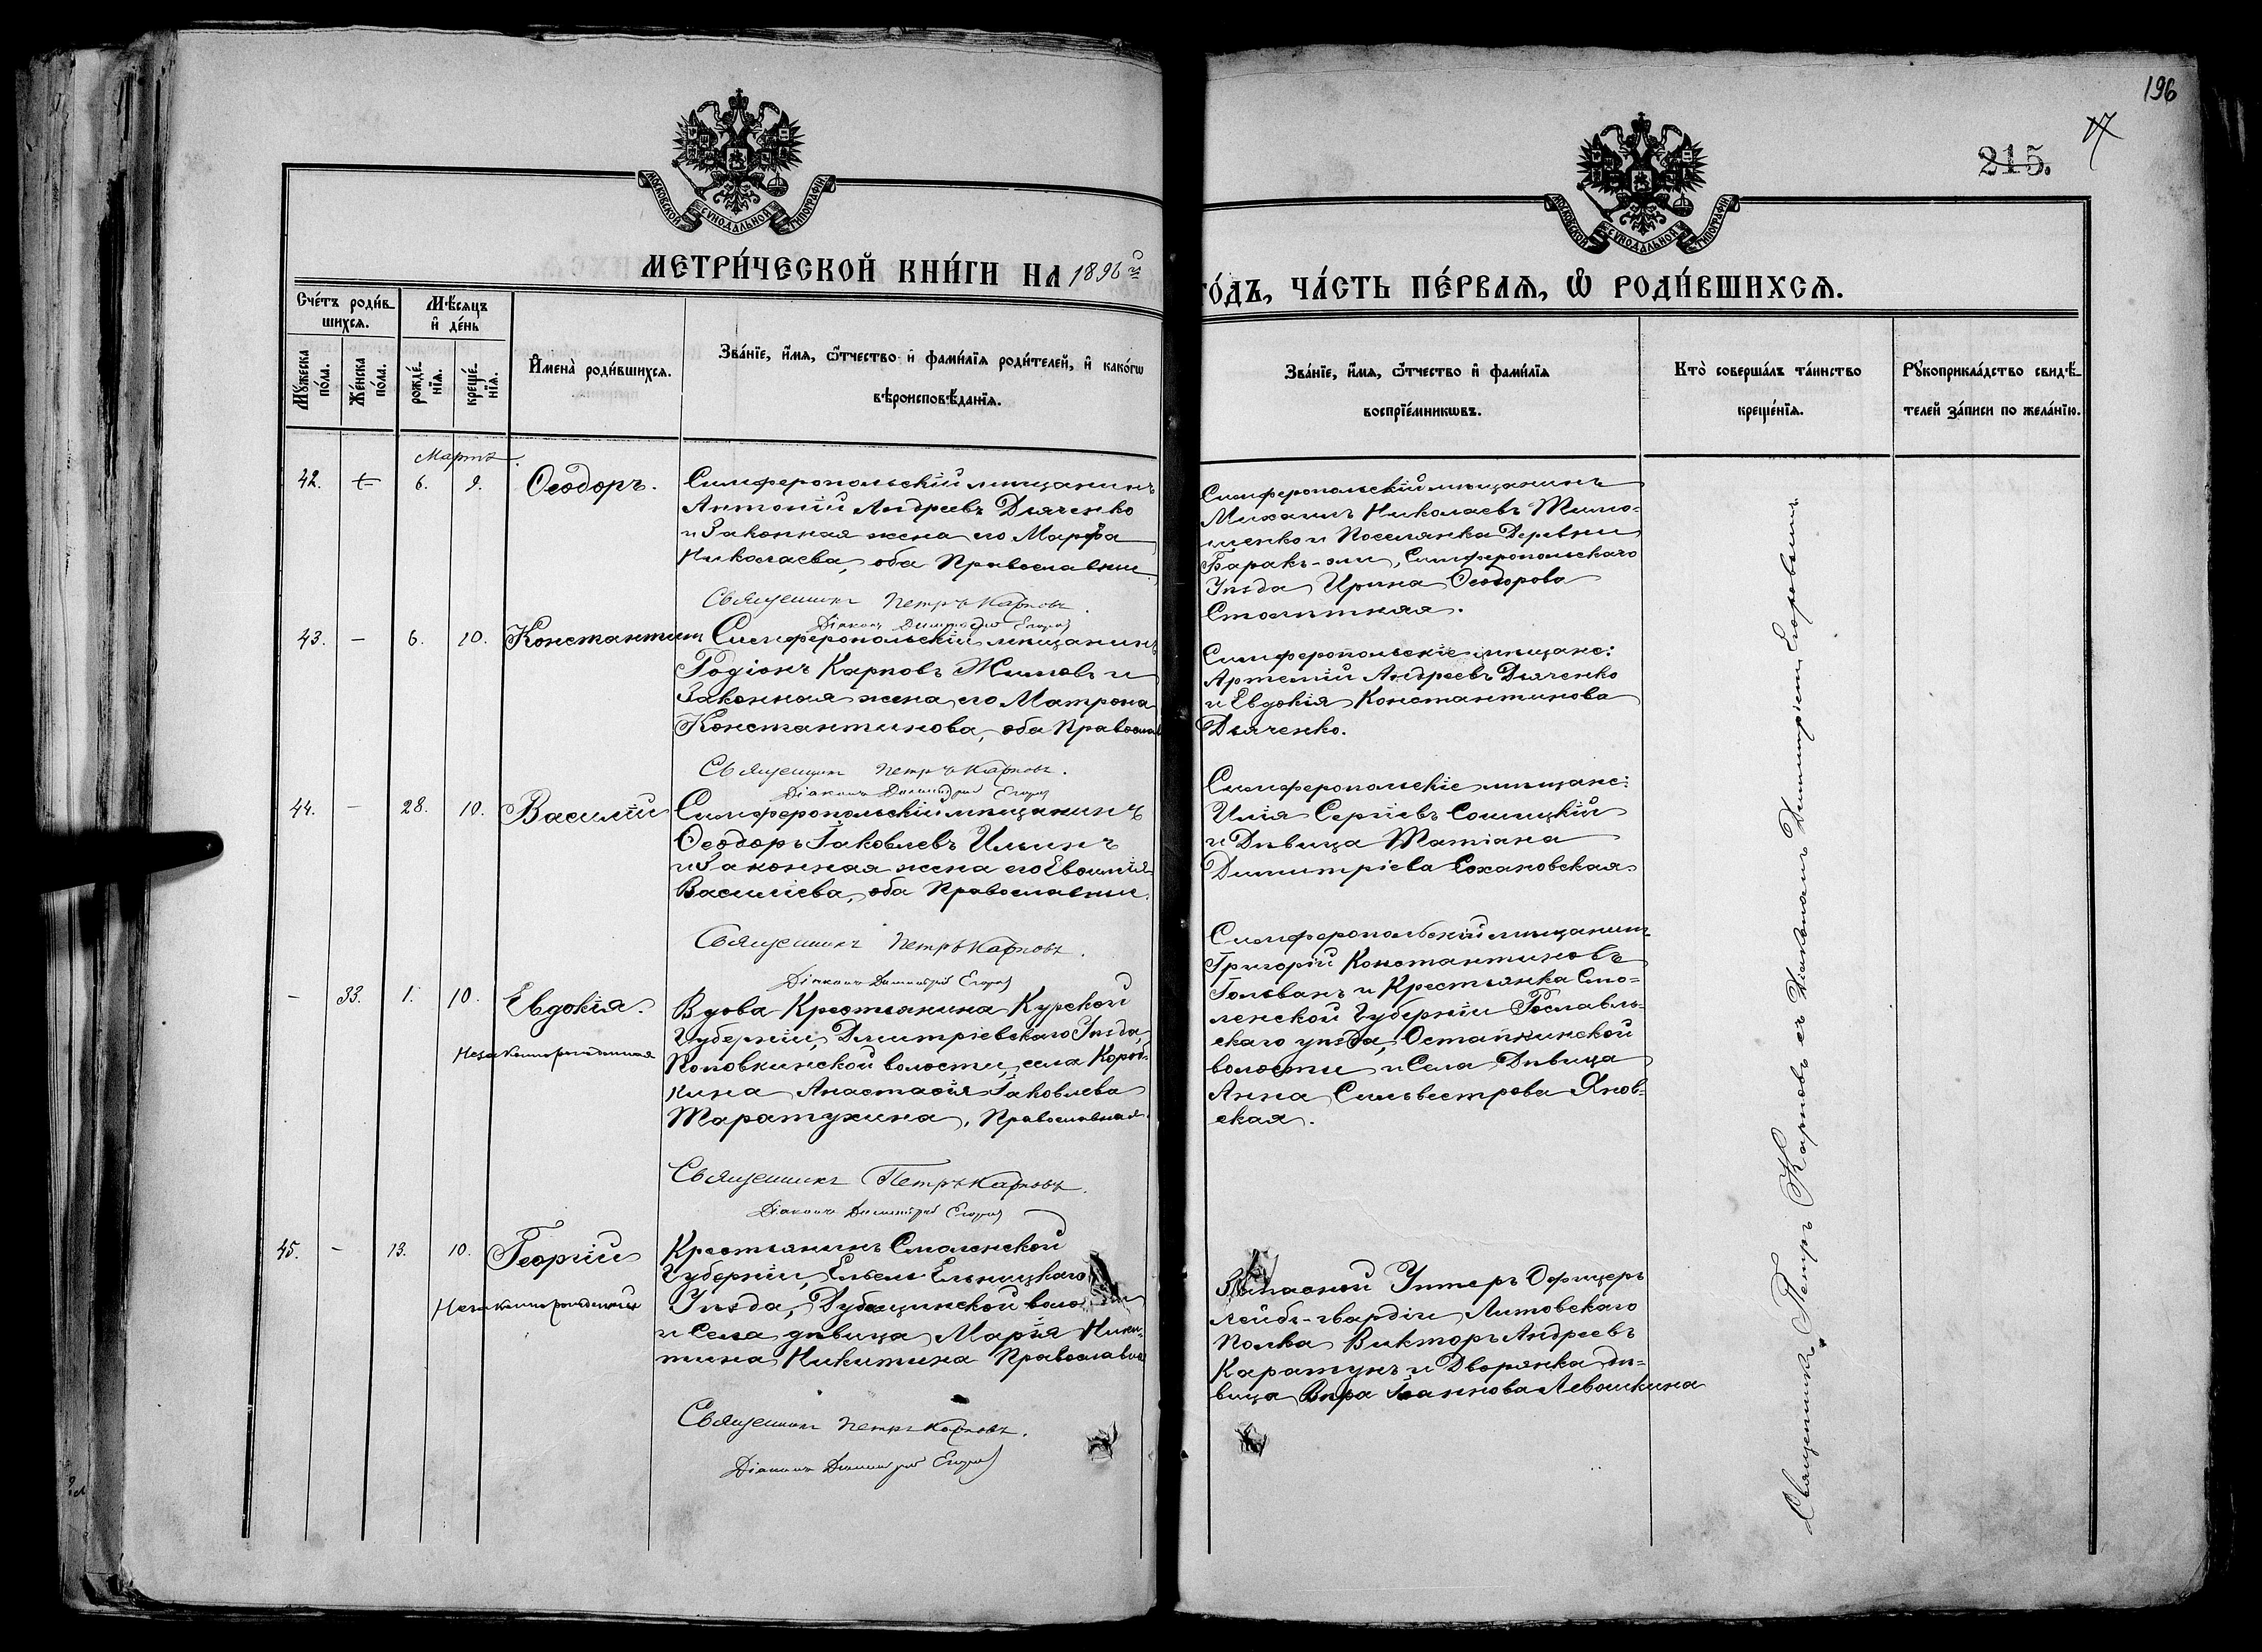 196
17
215.
МОСКОВСКОЙ СѴНОДАЛЬНОЙ ТИПОГРАФІИ
МОСКОВСКОЙ СѴНОДАЛЬНОЙ ТИПОГРАФІИ
МЕТРИ́ЧЕСКОЙ КНИ́ГИ НА 1896 й
ГО́ДЪ, ЧА́СТЬ ПЕ́РВАѦ, Ѡ҆ РОДИ́ВШИХСѦ.
Сче́тъ роди́в-
шихсѧ.
Мꙋ́жеска по́ла.
Же́нска по́ла.
Мѣ́сѧцъ
и҆ де́нь
рожде́-
нїѧ.
креще́-
нїѧ.
И҆мена̀ роди́вшихсѧ.
Зва́нїе, и҆́мѧ, ѻ҆́тчество и҆ фами́лїѧ роди́телей, и҆ како́гѡ
вѣроисповѣ́данїѧ.
Зва́нїе, и҆́мѧ, ѻ҆́тчество и҆ фами́лїѧ
воспрїе́мникѡвъ.
Кто̀ соверша́лъ та́инство
креще́нїѧ.
Рꙋкоприкла́дство свидѣ́-
телей за́писи по жела́нїю.
Мартъ
42. – 6. 9. Ѳеодоръ.
Симферопольскій мѣщанинъ
Антоній Андреевъ Дьяченко
и законная жена его Марфа
Николаева, оба Православные
Священникъ Петръ Карповъ.
Діаконъ Димитрій Егоровъ
Симферопольскій мѣщанинъ
Михаилъ Николаевъ Тимо-
шенко и Поселянка Деревни
Баракъ-оли, Симферопольскаго
Уѣзда Ирина Ѳеодорова
43. – 6. 10. Константинъ
Симферопольскій мѣщанинъ
Родіонъ Карповъ Жиловъ и
Законная жена его Матрона
Константинова, оба Правосл
Священникъ Петръ Карповъ.
Діаконъ Димитрій Егоровъ
Симферопольскіе мѣщане:
Артемій Андреевъ Дьяченко
и Евдокія Константинова
Дьяченко.
44. – 28. 10. Василій
Симферопольскій мѣщанинъ
Ѳеодоръ Іаковлевъ Ильинъ
и Законная жена его Евѳимія
Василіева, оба Православные.
Священникъ Петръ Карповъ.
Діаконъ Димитрій Егоровъ
Симферопольскіе мѣщане:
Илія Сергіевъ
и Дѣвица Татіана
Димитріева Сохановская
– 33. 1. 10. Евдокія.
Незаконнорожденная
Вдова Крестьянина Курской
Губерніи, Дмитріевскаго Уѣзда,
Поповкинской волости, села Короб-
кина Анастасія Іаковлева
Таратухина, Православная.
Священникъ Петръ Карповъ.
Діаконъ Димитрій Егоровъ
Симферопольскій мѣщанинъ
Григорій Константиновъ
Гольванъ и Крестьянка Смо-
ленской Губерніи Рославль-
скаго уѣзда, Остапкинской
волости и Села Дѣвица
Анна Сильвестрова Янов-
ская.
45. – 13. 10. Георгій
Незаконнорожденный
Крестьянинъ Смоленской
Губерніи, Ельницкаго
Уѣзда, Дубацинской воло
и Села дѣвица Марія Ники-
тина Никитина Православная
Священникъ Петръ Карповъ.
Діаконъ Димитрій Егоровъ
Запасной Унтеръ Офицеръ
Лейбъ-гвардіи Литовскаго
Полка Викторъ Андреевъ
Каратунъ и Дворянка дѣ-
вица Вѣра Іоаннова Левашкина
Священникъ Петръ Карповъ съ Діакономъ Димитріемъ Егоровымъ